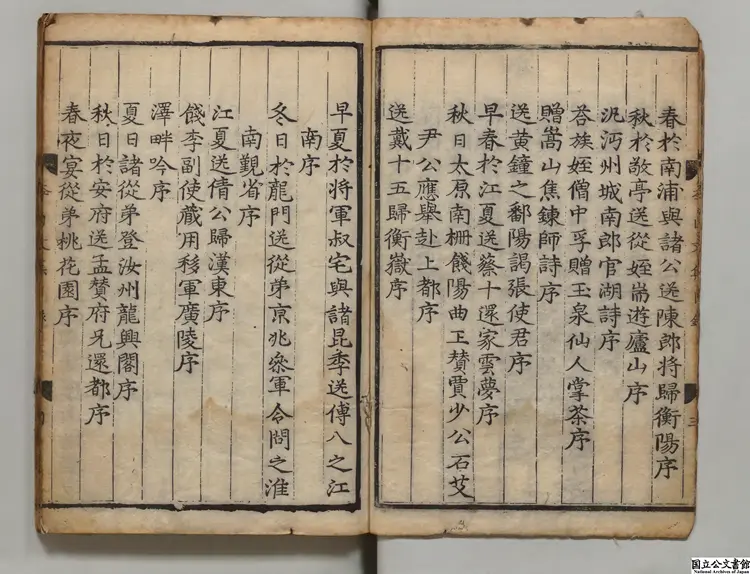 春於南浦與諸公送陳郎將歸衡陽序
秋於敬亭送從姪耑遊廬山序
汎沔州城南郎官湖詩序
荅族姪僧中孚贈玉泉仙人掌茶序
贈嵩山焦鍊師詩序
送黄鐘之鄱陽謁張使君序
早春於江夏送蔡十還家雲夢序
秋日太原南柵餞陽曲王賛賈少公石艾
尹公應舉赴上都序
送戴十五歸衡嶽序
早夏於将軍叔宅與諸昆季送傅八之江
南序
冬日於龍門送從弟京兆叅軍令問之淮
南覲省序
江夏送倩公歸漢東序
餞李副使藏用移軍廣陵序
澤畔吟序
夏日諸從弟登汝州龍興閣序
秋日於安府送孟賛府兄還都序
春夜宴從弟桃花園序
国立公文書館
National Archives of Japan